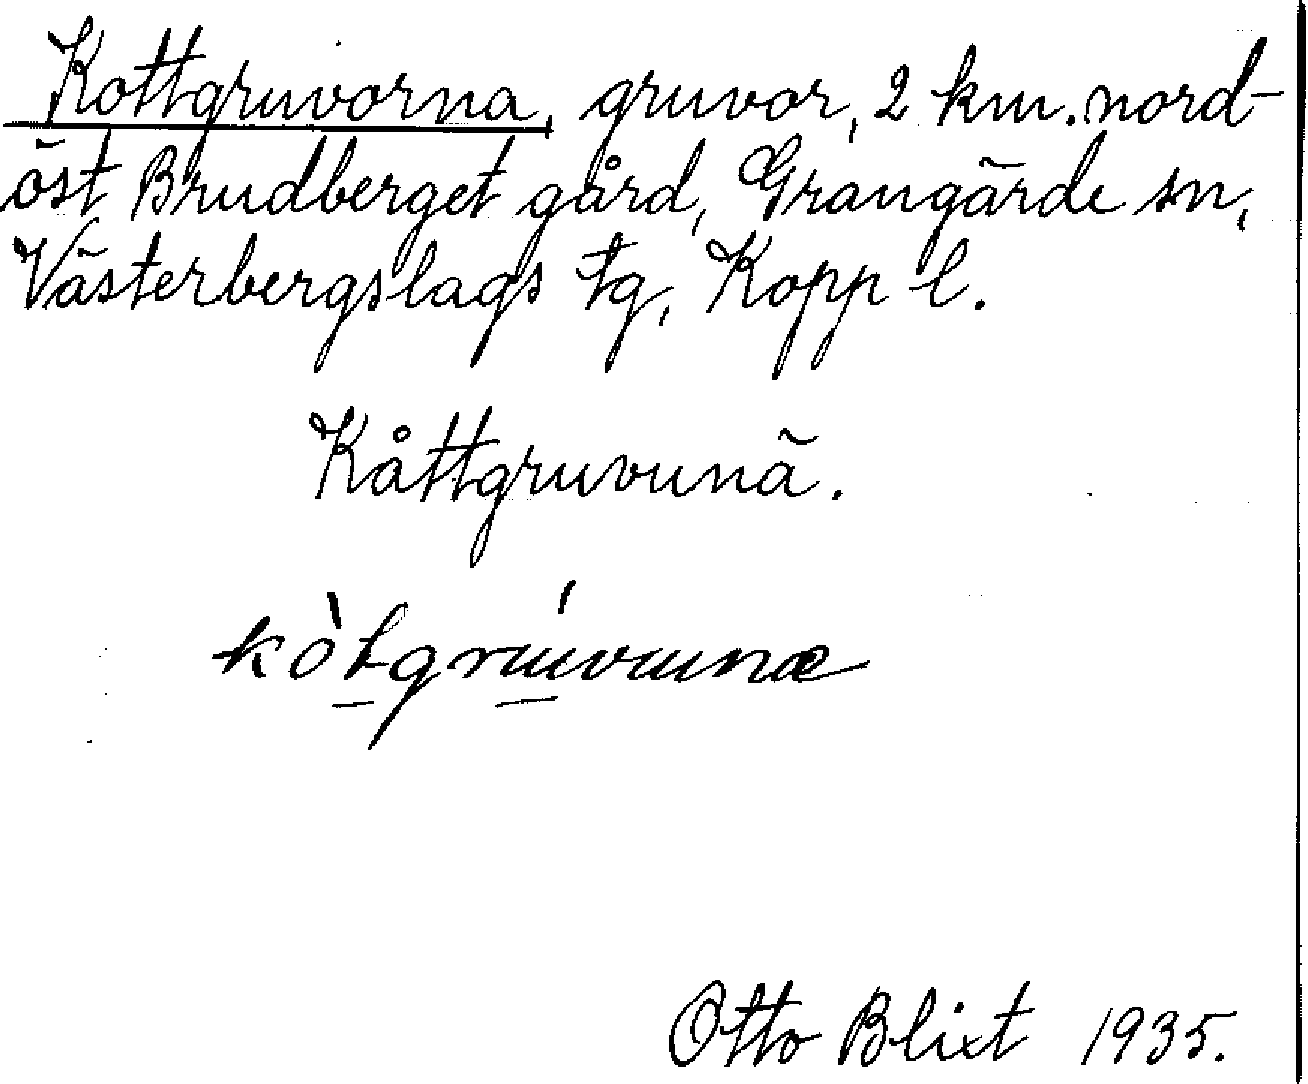 Kottgruvorna, gruvor, 2 km. nord-
öst Brudberget gård, Grangärde sn,
Västerbergslags tg, Kopp l.
Kåttgruvunä.
kòtgrúvunæ
Otto Blixt 1935.